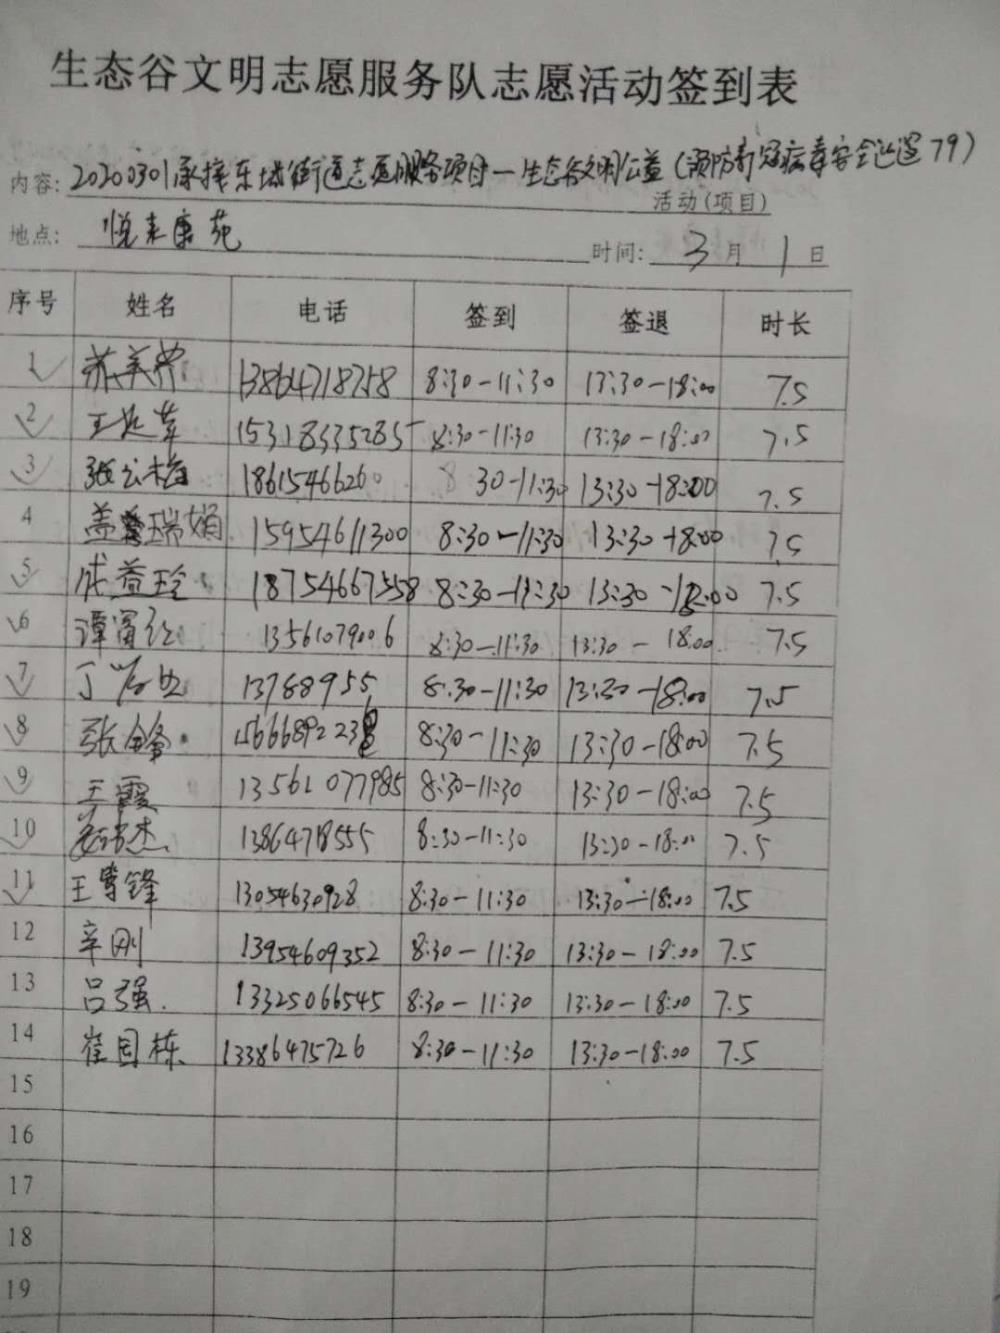 生态谷文明志愿服务队志愿活动签到表
内容: 20200301承接东城街道志愿服务项目—生态谷文明公益(预防新冠病毒安全巡逻79)
活动(项目)
地点: 悦来康苑 时间: 3月1日
序号 姓名 电话 签到 签退 时长
1 13864718758 8:30-11:30 13:30-18:00 7.5
2 15318335285 8:30-11:30 13:30-18:00 7.5
3 18615466260 8 30-11:30 13:30-18:00 7.5
4 盖瑞娟 15954611300 8:30-11:30 13:30-18:00 7.5
5 成益玲 18754667558 8:30-11:30 13:30-18:00 7.5
6 谭富红 13561079006 8:30-11:30 13:30-18:00 7.5
7 丁 13768955 8:30-11:30 13:30-18:00 7.5
8 张 8:30-11:30 13:30-18:00 7.5
9 王霞 13561077985 8:30-11:30 13:30-18:00 7.5
10 13864718555 8:30-11:30 13:30-18:00 7.5
11 王雪锋 13054630928 8:30-11:30 13:30-18:00 7.5
12 辛刚 13954609352 8:30-11:30 13:30-18:00 7.5
13 吕强. 13325066545 8:30-11:30 13:30-18:00 7.5
14 崔国栋 13386475726 8:30-11:30 13:30-18:00 7.5
15
16
17
18
19